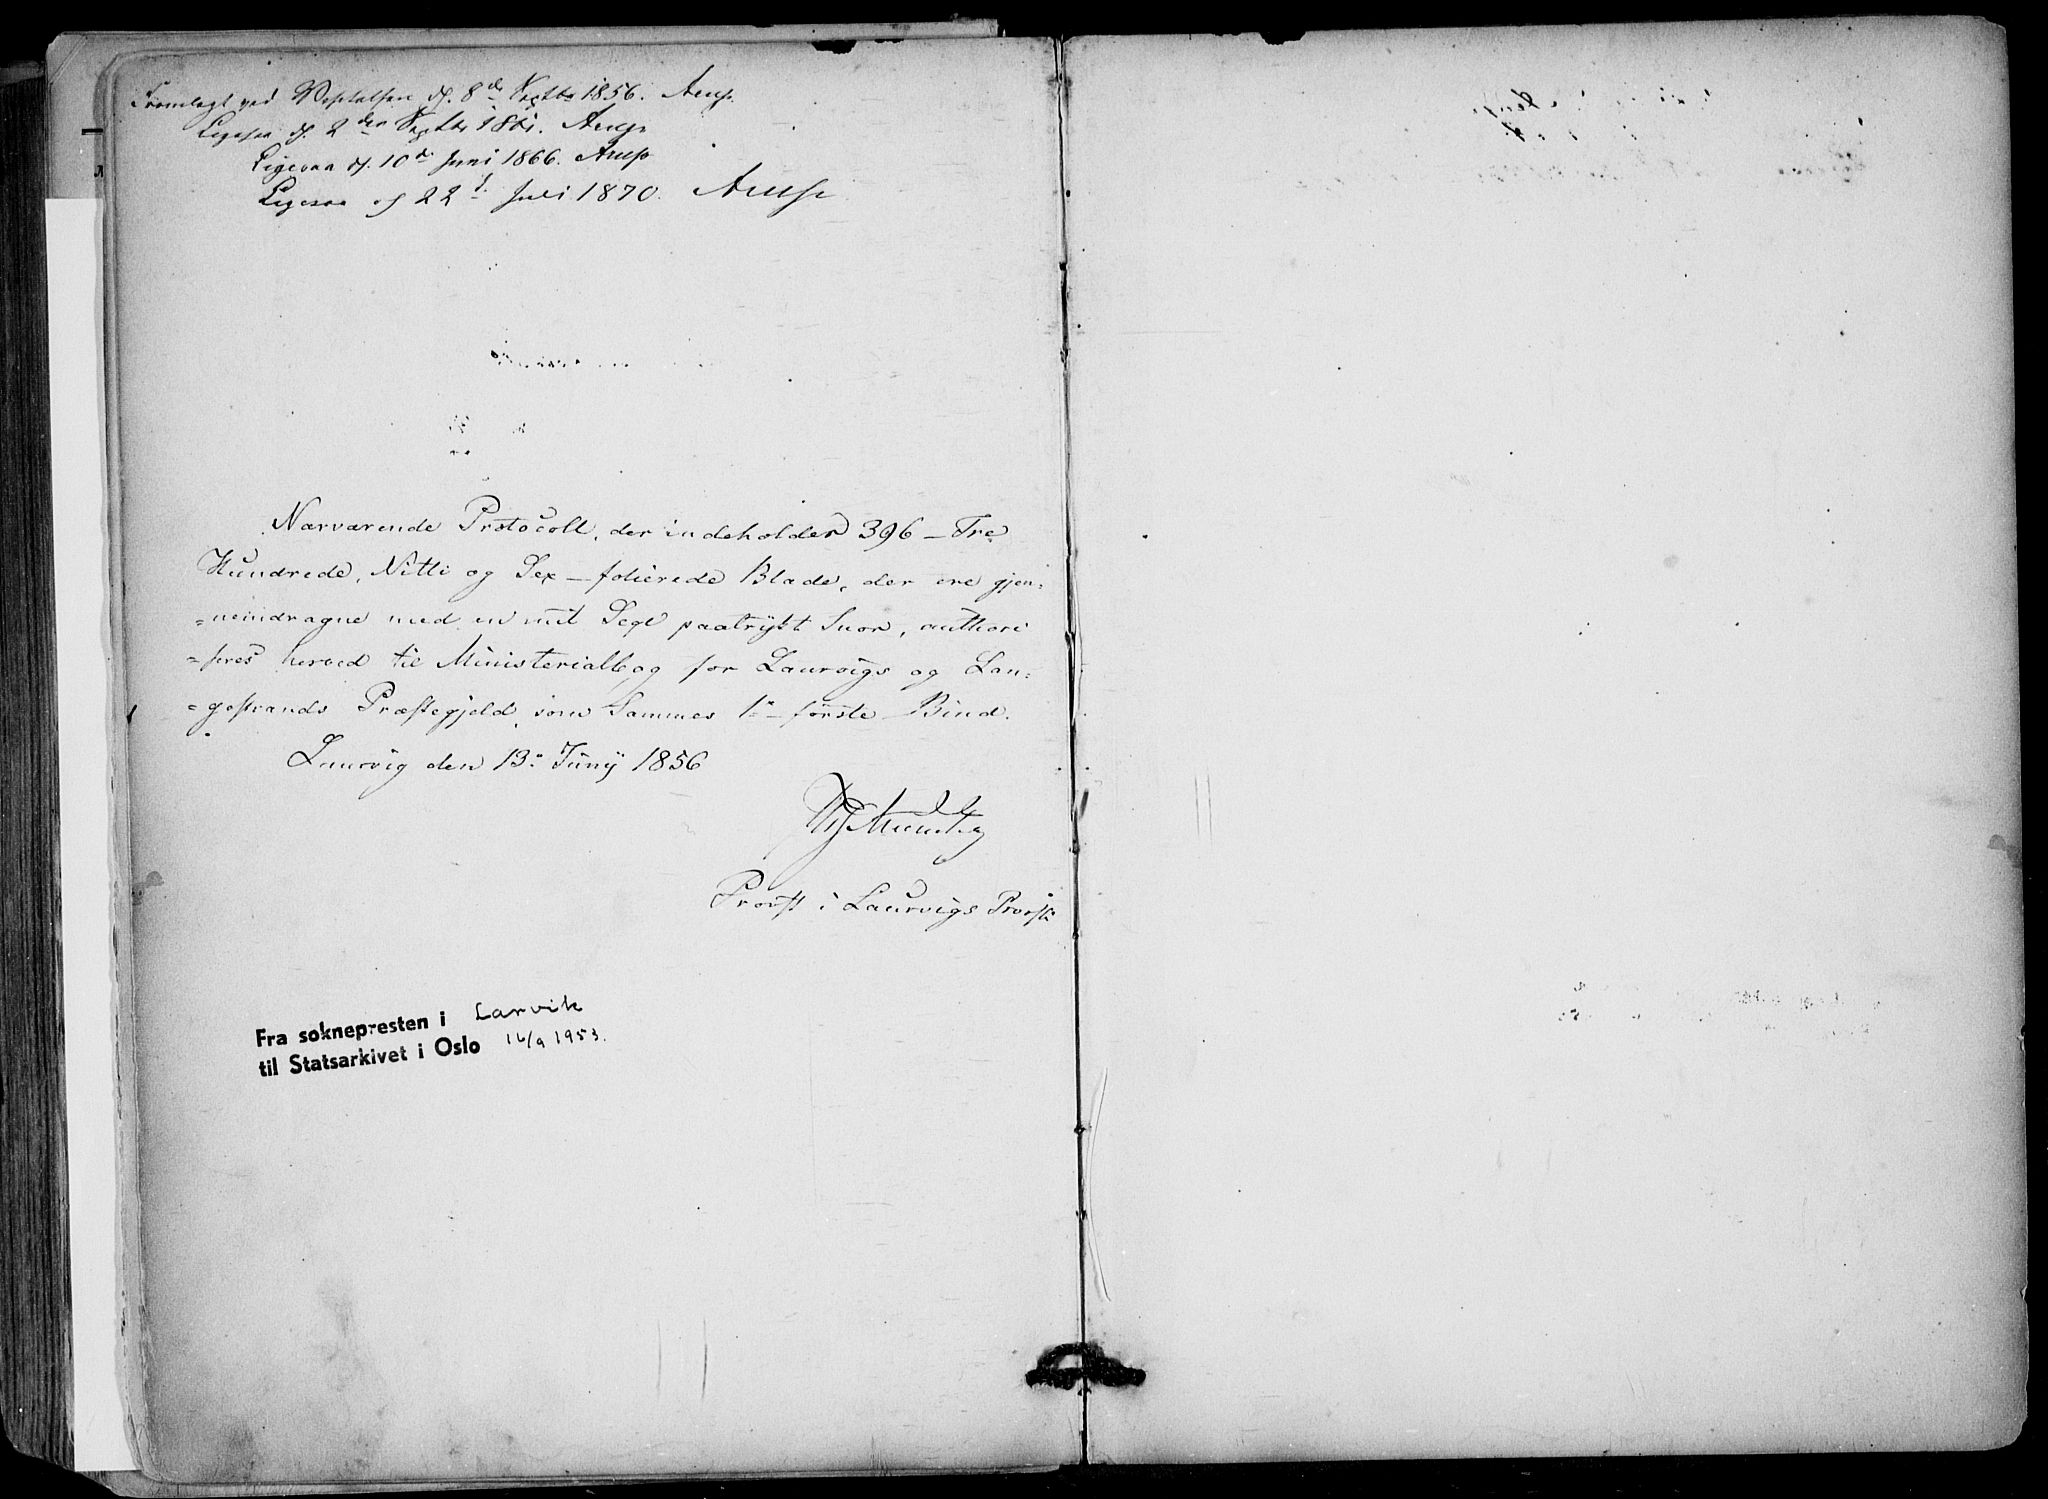 Fremlagt ved Visitatsen d. 8de Septbr 1856. Arup
Ligesaa d. 2den Septbr 1861. Arup
Ligesaa d. 10de Juni 1866. Arup
Ligesaa d 22d Juli 1870. Arup
Nærværende Protocoll, der indeholder 396 – Tre
Hundrede, Nitti og Sex – folierede Blade, der ere gjen-
-nemdragne med en mit Segl paatrykt Snor, authori
-seres herved til Ministerialbog for Laurvigs og Lan-
-gestrands Præstegjeld, som Sammes 1ste første Bind.
Laurvig den 13de Junij 1856
Provst i Laurvigs Provsti
Fra soknepresten i Larvik
til Statsarkivet i Oslo 16/9 1953.